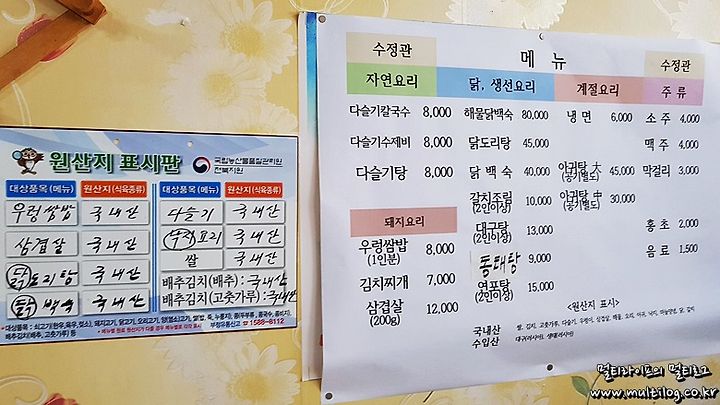 원산지 표시판
국립농산물품질관리원
전북지원
대상품목(메뉴) 원산지(식육종류) 대상품목(메뉴) 원산지(식육종류)
우렁쌈밥 국내산 다슬기 국내산
삼겹살 국내산 요리 국내산
닭도리탕 국내산 쌀 국내산
닭백숙 국내산 배추김치(배추): 국내산
배추김치(고춧가루): 국내산
부정유통신고 ☎ 1588-8112
수정관 메뉴 수정관
자연요리 닭, 생선요리 계절요리 주류
다슬기칼국수 8,000 해물닭백숙 80,000 냉면 6,000 소주 4,000
다슬기수제비 8,000 닭도리탕 45,000 맥주 4,000
다슬기탕 8,000 닭백숙 40,000 아귀탕 大 45,000 막걸리 3,000
(공기별도)
갈치조림 10,000 아귀탕 中 30,000
(2인이상) (공기별도)
돼지요리 대구탕 13,000 홍초 2,000
(2인이상)
우렁쌈밥 8,000 동태탕 9,000 음료 1,500
(1인분)
김치찌개 7,000 연포탕 15,000
(2인이상)
삼겹살 12,000
(200g)
<원산지 표시>
국내산
수입산
멀티라이프의 멀티로그
www.multilog.co.kr